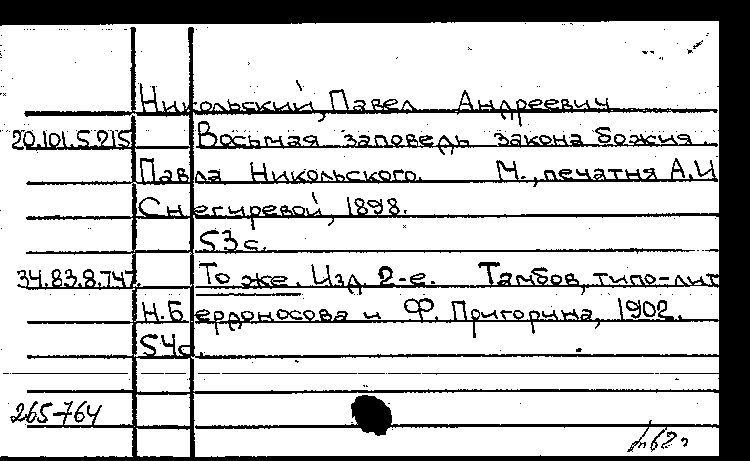 Никольский, Павел Андреевич
20.101.5.215 Восьмая заповедь закона божия.
Павла Никольского. М., печатня А.И
Снегиревой, 1898.
53с.
34.83.8.747. То же. Изд. 2-е. Тамбов, типо-лит
Н. Бердоносова и Ф. Пригорина, 1902.
54с.
265-764